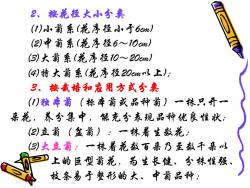 2、按花径大小分类
(1)小菊系(花序径小于6cm)
(2)中菊系(花序径6～10cm)
(3)大菊系(花序径10～20cm)
(4)特大菊系(花序径20cm以上);
3、按栽培和应用方式分类
(1)独本菊（标本菊或品种菊）一株只开一
朵花，养分集中，能充分表现品种优良性状;
(2)立菊（盆菊）：一株着生数花;
(3)大立菊：一株着花数百朵乃至数千朵以
上的巨型菊花，为生长健、分株性强、
枝条易于整形的大、中菊品种;